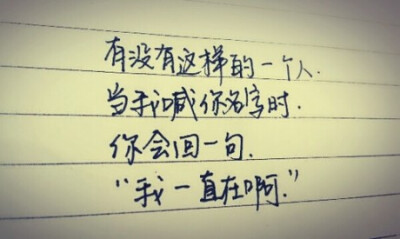 有没有这样的一个人.
当我喊你名字时.
你会回一句.
“我一直在啊.”